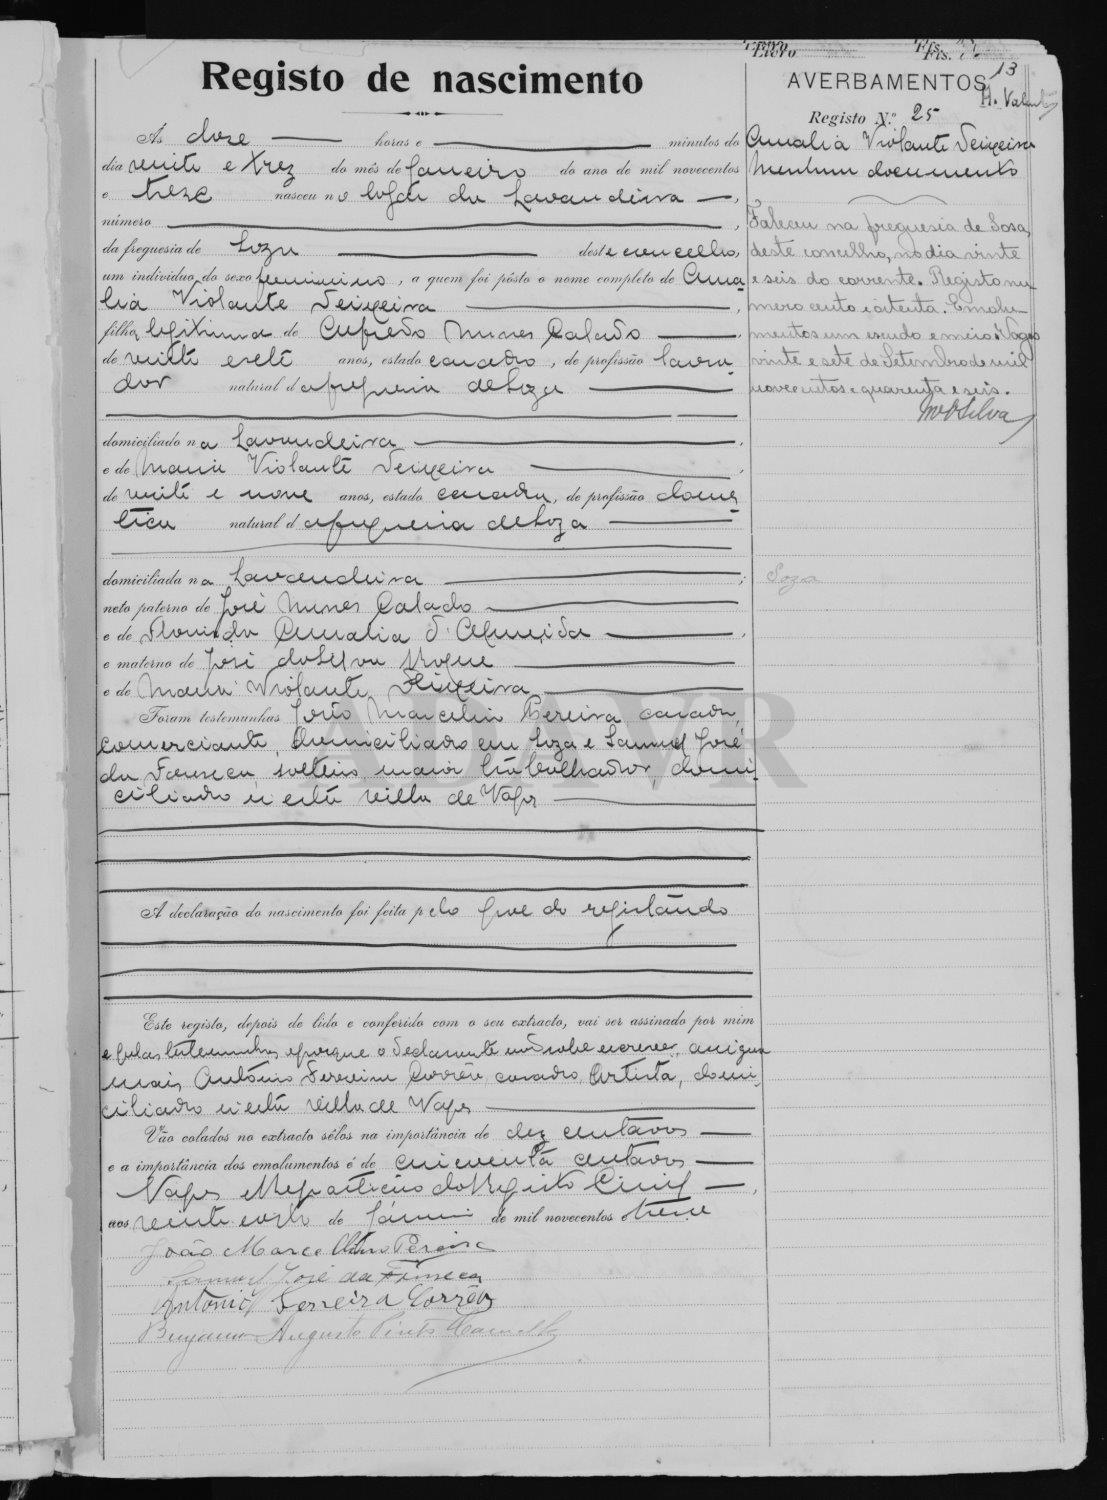 Livro
Fls.
13
Registo de nascimento
AVERBAMENTOS
Registo N.º 25
Ás doze horas e minutos do
dia vinte e trez do mês de Janeiro do ano de mil novecentos
e treze nasceu no logar da Lavandeira,
número
da freguesia de Soza deste concelho,
um individuo do sexo feminino, a quem foi pôsto o nome completo de Ama-
lia Violante Teixeira,
filha legitima de Nunes Calado
de vinte e sete anos, estado casado, de profissão lavra-
dor natural da freguesia de Soza
domiciliado na Lavandeira,
e de Maria Violante Teixeira,
de vinte e nove anos, estado casada, de profissão domes-
tica natural da freguesia de Soza
domiciliada na Lavandeira;
neto paterno de José Nunes Calado
e de Amalia d'Almeida,
e materno de José da Silva Roque
e de Maria Violante Teixeira
Foram testemunhas João Marcelino Pereira, casado,
comerciante, domiciliado em Soza e Samuel José
da Fonseca, solteiro, maior, trabalhador, domi-
ciliado n'esta villa de Vagos
A declaração do nascimento foi feita pelo pae do registando
Este registo, depois de lido e conferido com o seu extracto, vai ser assinado por mim
e pelas testemunhas e porque o declarante não sabe escrever, assigna
mais Antonio Ferreira Corrêa, casado, Artista, domi-
ciliado n'esta villa de Vagos
Vão colados no extracto sêlos na importância de dez centavos
e a importância dos emolumentos é de cincoenta centavos
Vagos e Repartição do Registo Civil,
aos vinte e oito de Janeiro de mil novecentos e treze
João Marcellino Pereira
Samuel José da Fonseca
Antonio Ferreira Corrêa
Augusto Pinto
Amalia Violante Teixeira
Nenhum documento
Faleceu na freguesia de Sosa,
deste concelho, no dia vinte
e seis do corrente. Registo nu-
mero cento e oitenta. Emolu-
mentos um escudo e meio. Vagos
vinte e sete de Setembro de mil
novecentos e quarenta e seis.
Silva
Soza
ADAVR